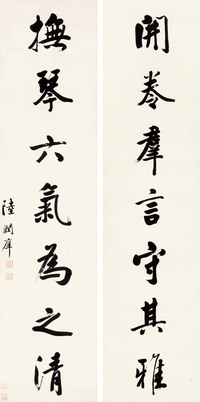 開卷羣言守其雅
撫琴六氣為之清
陸潤庠